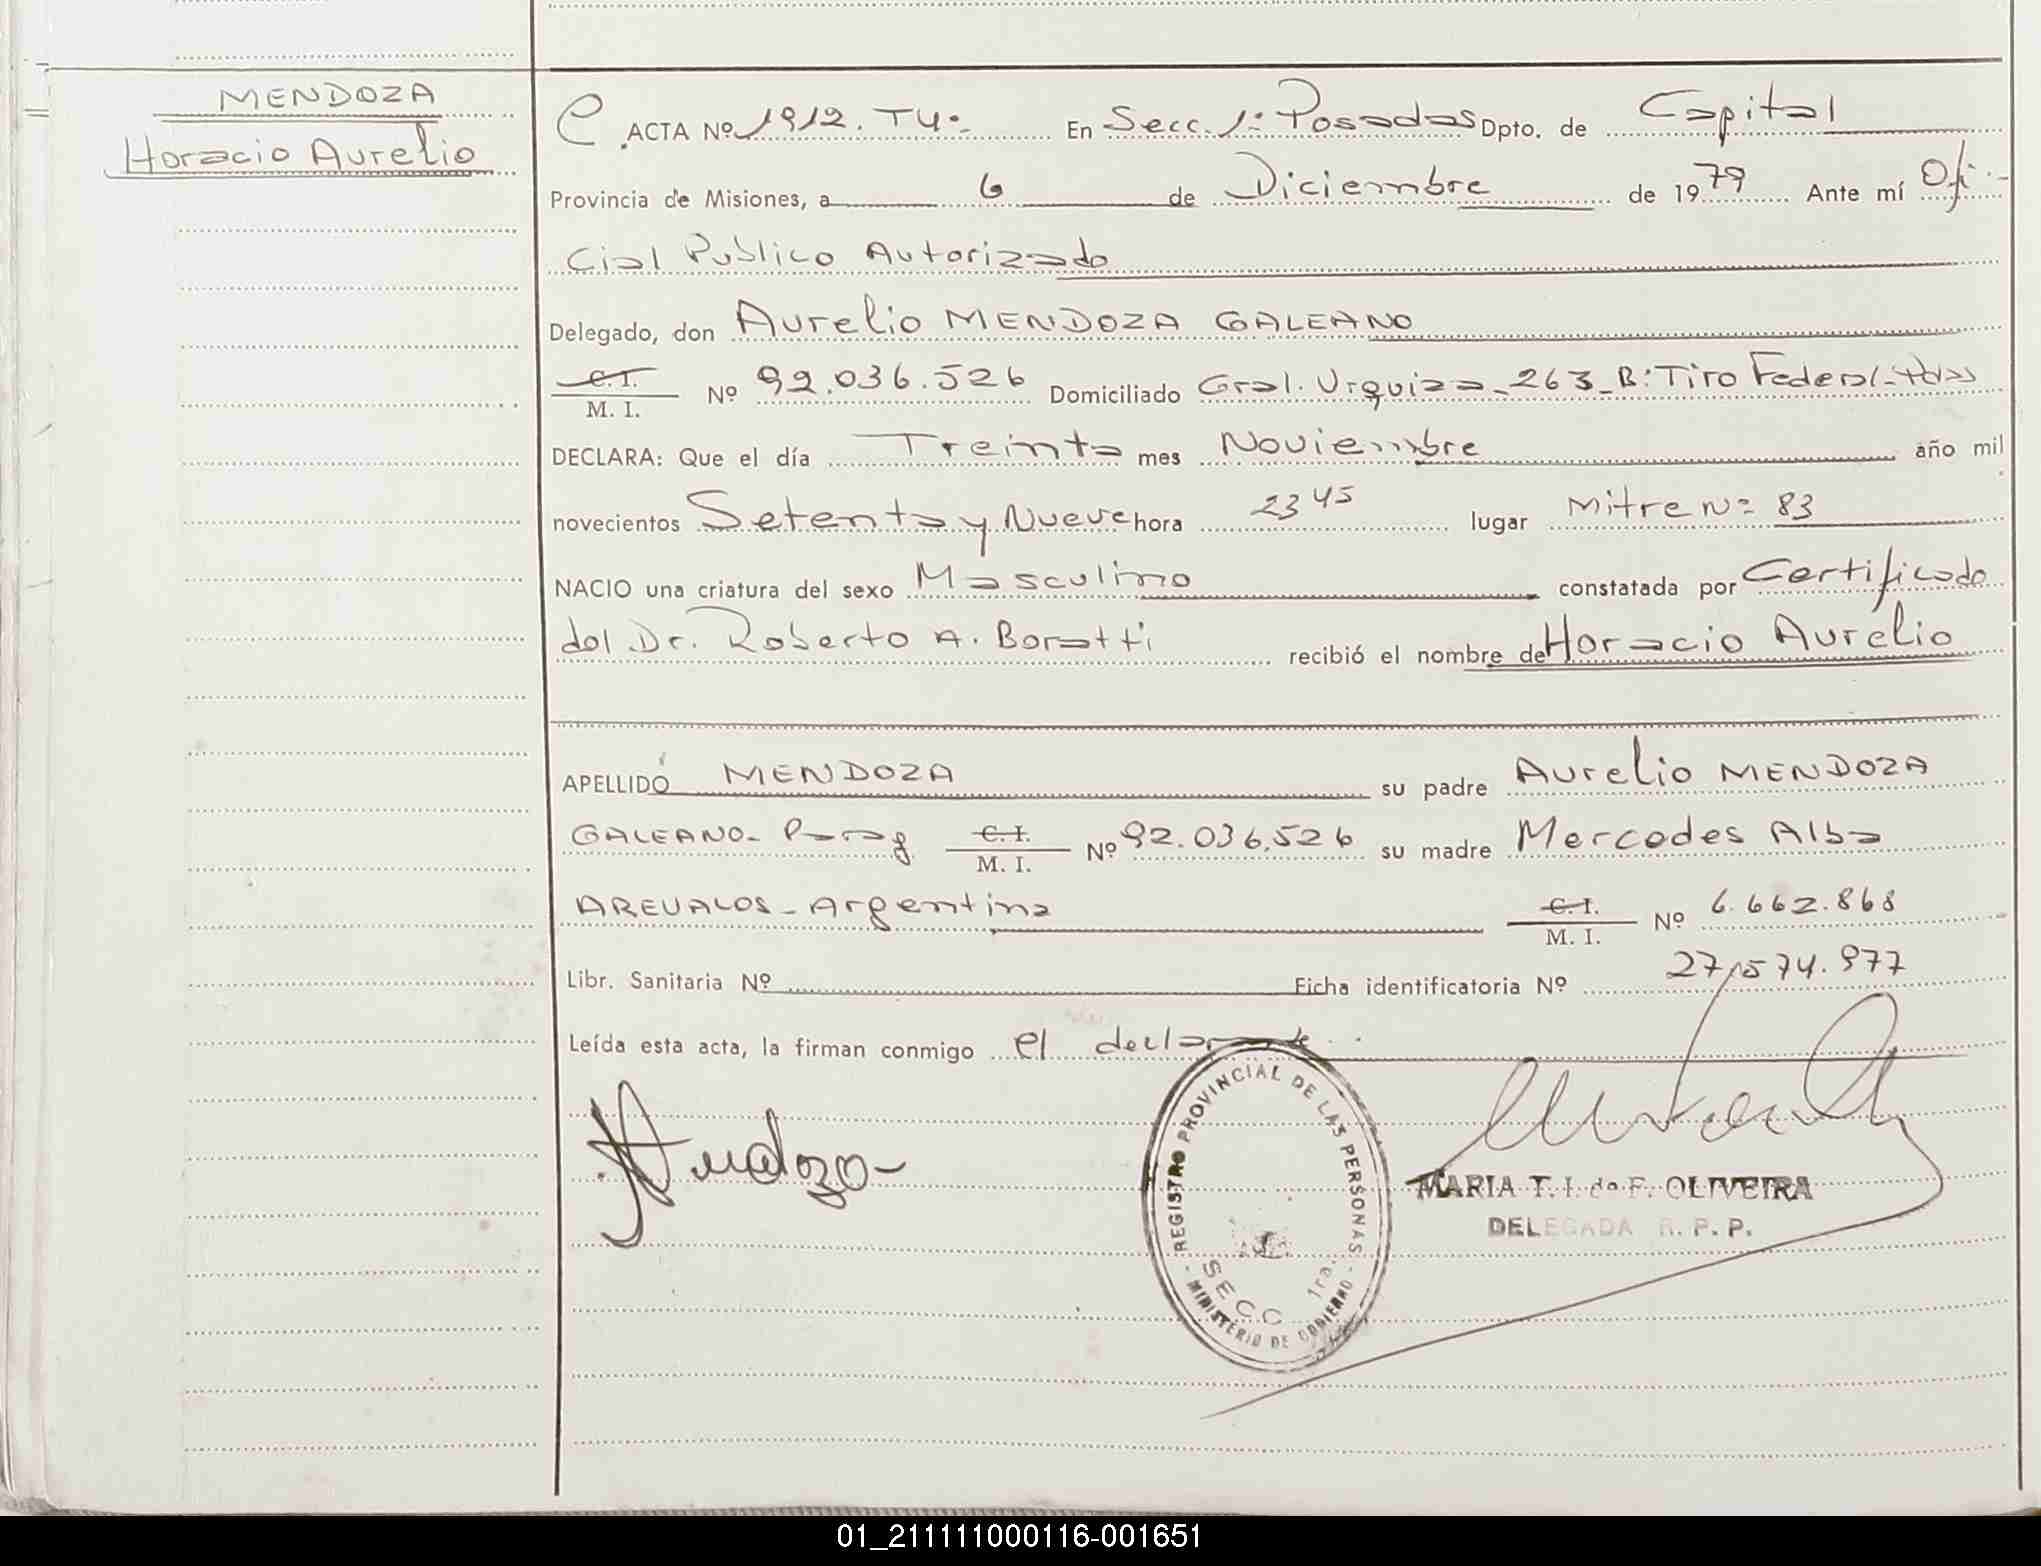 MENDOZA
Horacio Aurelio
ACTA Nº 1912. Tº 4º En Secc. 1º Posadas Dpto. de Capital
Provincia de Misiones, a 6 de Diciembre de 1979 Ante mí Ofi-
cial Publico Autorizado
Delegado, don Aurelio MENDOZA GALEANO
C. I.
M. I. Nº 92.036.526 Domiciliado Gral. Urquiza - 263 - B: Tiro Federal - Pdas
DECLARA: Que el día Treinta mes Noviembre año mil
novecientos Setenta y Nueve hora 23 45 lugar Mitre Nº 83
NACIO una criatura del sexo Masculino constatada por Certificado
del Dr. Roberto A. Boratti recibió el nombre de Horacio Aurelio
APELLIDO MENDOZA su padre Aurelio MENDOZA
GALEANO - Parag C. I.
M. I. Nº 92.036.526 su madre Mercedes Alba
AREVALOS - Argentina C. I.
M. I. Nº 6.662.868
Libr. Sanitaria Nº Ficha identificatoria Nº 27.574.977
Leída esta acta, la firman conmigo el declarante.
REGISTRO PROVINCIAL DE LAS PERSONAS
SECC 1ra.
- MINISTERIO DE GOBIERNO -
MARIA T. I. de F. OLIVEIRA
DELEGADA R. P. P.
01_211111000116-001651